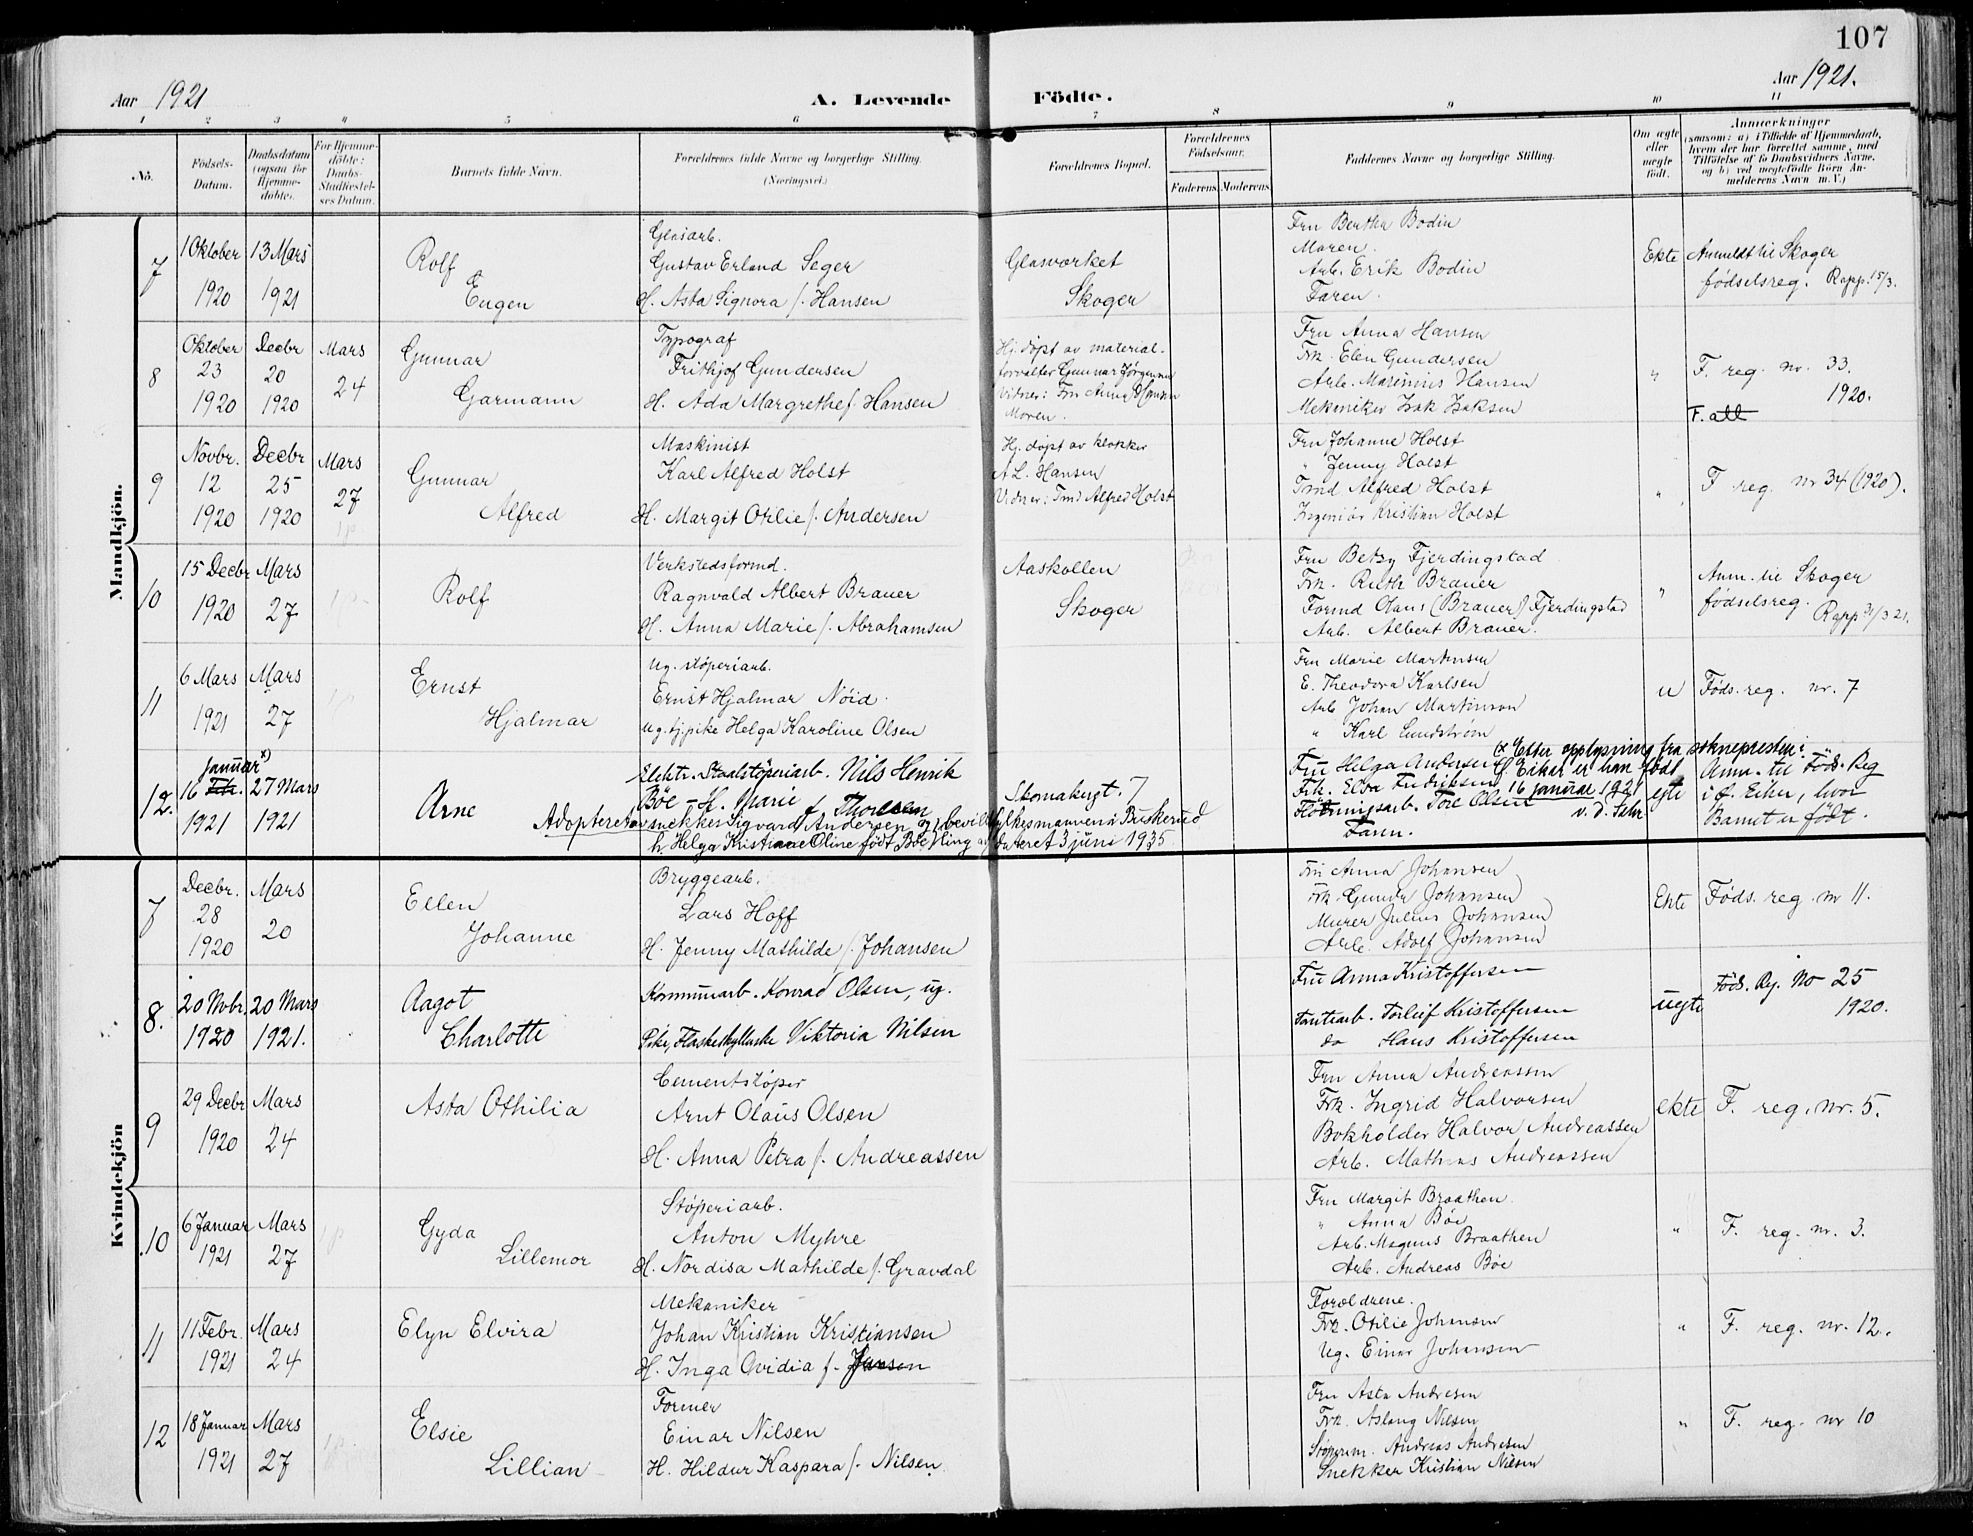 107
Aar 1921
A. Levende
Födte.
Aar 1921.
1 2 3 4 5 6 7 8 9 10 11
No.
Födsels-Datum.
Daabsdatum (ogsaa for Hjemme-döbte).
For Hjemme-döbte: Daabs-Stadfæstel-ses Datum.
Barnets fulde Navn.
Forældrenes fulde Navne og borgerlige Stilling.
(Næringsvei.)
Forældrenes Bopæl.
Forældrenes Födselsaar.
Faderens. Moderens.
Faddernes Navne og borgerlige Stilling.
Om ægte eller uægte födt.
Anmærkninger
(saasom: a) i Tilfælde af Hjemmedaab,
hvem der har forrettet samme, med
Tilföielse af to Daabsvidners Navne,
og b) ved uægtefödte Börn An-
melderens Navn m. V.)
Mandkjön.
7
1 Oktober 1920
13 Mars 1921
Rolf
Eugen
Glasarb.
Gustav Erland Seger
H. Asta Signora f. Hansen
Glasværket
Skoger
Fru Bertha Bodin
Moren.
Arb. Erik Bodin
Faren.
Ekte
Anmeldt til Skoger
fødselsreg. Rapp. 15/3.
8
Oktober 23 1920
Decbr 20 1920
Mars 24
Gunnar
Garmann
Typograf
Frithjof Gundersen
H. Ada Margrethe f. Hansen
Hj. døpt av material-
forvalter Gunnar Jørgensen
Vidner: Fru Anna Hansen
Moren.
Fru Anna Hansen
Frk. Elen Gundersen
Arb. Marinius Hansen
Mekaniker Isak Isaksen
"
F. reg. nr. 33.
1920.
F. att
9
Novbr. 12 1920
Decbr 25 1920
Mars 27
Gunnar
Alfred
Maskinist
Karl Alfred Holst
H. Margit Otilie f. Andersen
Hj. døpt av klokker
A L. Hansen
Vidner: Tmd Alfred Holst
Fru Johanne Holst
" Jenny Holst
Tmd Alfred Holst
Ingeniør Kristian Holst
"
F reg. nr 34 (1920).
10
15 Decbr 1920
Mars 27
Rolf
Verkstedsformd.
Ragnvald Albert Brauer
H. Anna Marie f. Abrahamsen
Aaskollen
Skoger
Fru Betzy Fjerdingstad
Frk. Ruth Brauer
Formd Olaus (Brauer) Fjerdingstad
Arb. Albert Brauer.
"
Anm. til Skoger
fødselsreg.
Rapp 31/3 21.
11
6 Mars 1921
Mars 27
Ernst
Hjalmar
Ug. støperiarb.
Ernst Hjalmar Nöid.
Ug. tj.pike Helga Karoline Olsen
Fru Marie Martinsen
E. Theodora Karlsen
Arb Johan Martinson
" Karl Lundstrøm
u
Føds. reg. nr. 7
12.
januar x)
16 Feb. 1921
27 Mars 1921
Arne
Elektr. Staalstöperiarb. Nils Henrik
Böe - H. Marie f. Thoresen
Adopteret av snekker Sigvard Andersen og
h. Helga Kristiane Oline født Böe
Skomakergt. 7
fylkesmannen i Buskerud
dateret 3 juni 1935
Fru Helga Andersen
Frk. Elda Fredriksen
Flötningsarb. Tore Olsen
Faren.
x Efter opplysning fra soknepresten i
Ö. Eiker er han født
16 januar 1921
egte
Anm. til Föds. Reg
i Ö. Eiker, hvor
Barnet er født.
Kvindekjön
7
Decbr. 28 1920
Mars 20
Ellen
Johanne
Bryggearb.
Lars Hoff
H. Jenny Mathilde f. Johansen
Fru Anna Johansen
Frk. Gunda Johansen
Murer Julius Johansen
Arb. Adolf Johansen
Ekte
Föds. reg. nr 11.
8.
20 Nvbr. 1920
20 Mars 1921.
Aagot
Charlotte
Kommunarb. Konrad Olsen, ug.
Pike, Flaskeskyllerske Viktoria Nilsen
Fru Anna Kristoffersen
Tomtearb. Torleif Kristoffersen
do Hans Kristoffersen
uegte
Föds. Rg. No 25
1920.
9
29 Decbr 1920
Mars 24
Asta Othilia
Cementstøper
Arnt Olaus Olsen
H. Anna Petra f. Andreassen
Fru Anna Andreassen
Frk. Ingrid Halvorsen
Bokholder Halvor Andreassen
Arb. Mathias Andreassen
ekte
F. reg. nr. 5.
10
6 Januar 1921
Mars 27
Gyda
Lillemor
Støperiarb.
Anton Myhre
H. Nordisa Mathilde f. Gravdal
Fru Margit Braathen.
" Anna Böe
Arb. Magnus Braathen
Arb. Andreas Böe
"
F. reg. nr. 3.
11
11 Febr. 1921
Mars 24
Elyn Elvira
Mekaniker
Johan Kristian Kristiansen
H. Inga Ovidia f. Jansen
Foræeldrene.
Frk. Otilie Johansen
Ug. Einar Johansen
"
F. reg. nr. 12.
12
18 Januar 1921
Mars 27
Elsie
Lillian
Former
Einar Nilsen
H. Hildur Kaspara f. Nilsen.
Fru Asta Andresen
Frk. Aslaug Nilsen
Støperim. Andreas Andresen
Snekker Kristian Nilsen
"
F. reg. nr 10